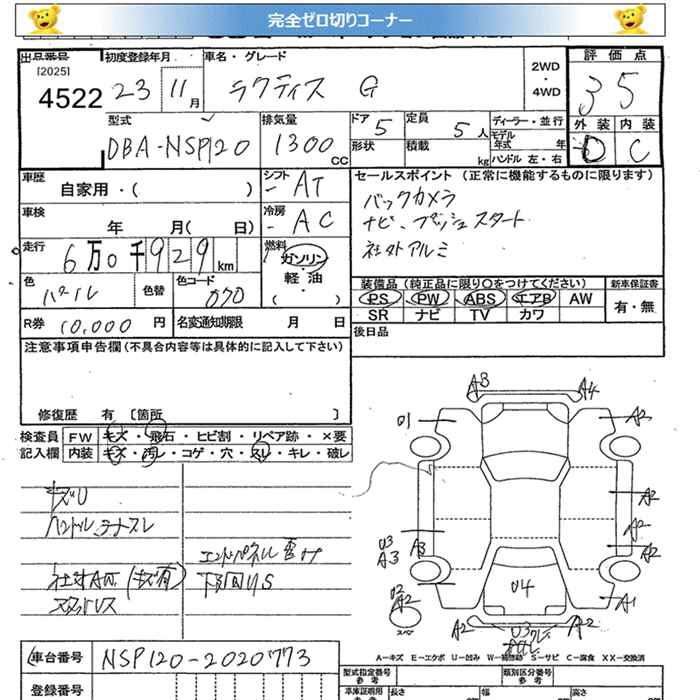 完全ゼロ切りコーナー
出品番号 初度登録年月 車名・グレード 2WD・4WD 評価点
[2025]
4522 23 11月 ラクティス G 35
型式 排気量 ドア 5 定員 5人 ディーラー・並行 外装 内装
モデル年式 年
DBA-NSP120 1300cc 形状 積載 kg ハンドル 左・右 D C
車歴 シフト セールスポイント (正常に機能するものに限ります)
自家用・( ) - AT バックカメラ
車検 冷房 ナビ、プッシュスタート
年 月( ) - AC 社外アルミ
走行 燃料
6万0千929km ガソリン・軽・油( )
装備品 (純正品に限り○をつけてください) 新車保証書
色 パール 色替 色コード 070 PS PW ABS エアB AW 有・無
SR ナビ TV カワ
R券 10,000円 名変通知期限 月 日 後日品
注意事項申告欄 (不具合内容等は具体的に記入して下さい)
修復歴 有 [箇所 ]
検査員 FW キズ・飛石・ヒビ割・リペア跡・×要
記入欄 内装 キズ・汚レ・コゲ・穴・スレ・キレ・破レ
キズU
エンドパネル
社外AW(キズ有) 下回りUS
A3 A4
U1 A2
A2
A2
U3 A3 A3 A2
U2 A2 U4 A1
スペア
A2 U3 A2
A-キズ E-エクボ U-凹み W-補修跡 S-サビ C-腐食 XX-交換済
車台番号 NSP120-2020773 型式指定番号 参考 類別区分番号 参考
登録番号 車庫証明用 長さ 幅 高さ